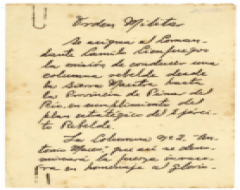 Orden Militar
Se asigna al Coman-
dante Camilo Cienfuegos
la misión de conducir una
columna rebelde desde
la Sierra Maestra hasta
la Provincia de Pinar del
Rio, en cumplimiento del
plan estratégico del Ejército
Rebelde.
La Columna No. 2, "An-
tonio Maceo", que así se deno-
minará la fuerza invaso-
ra en homenaje al glorio-